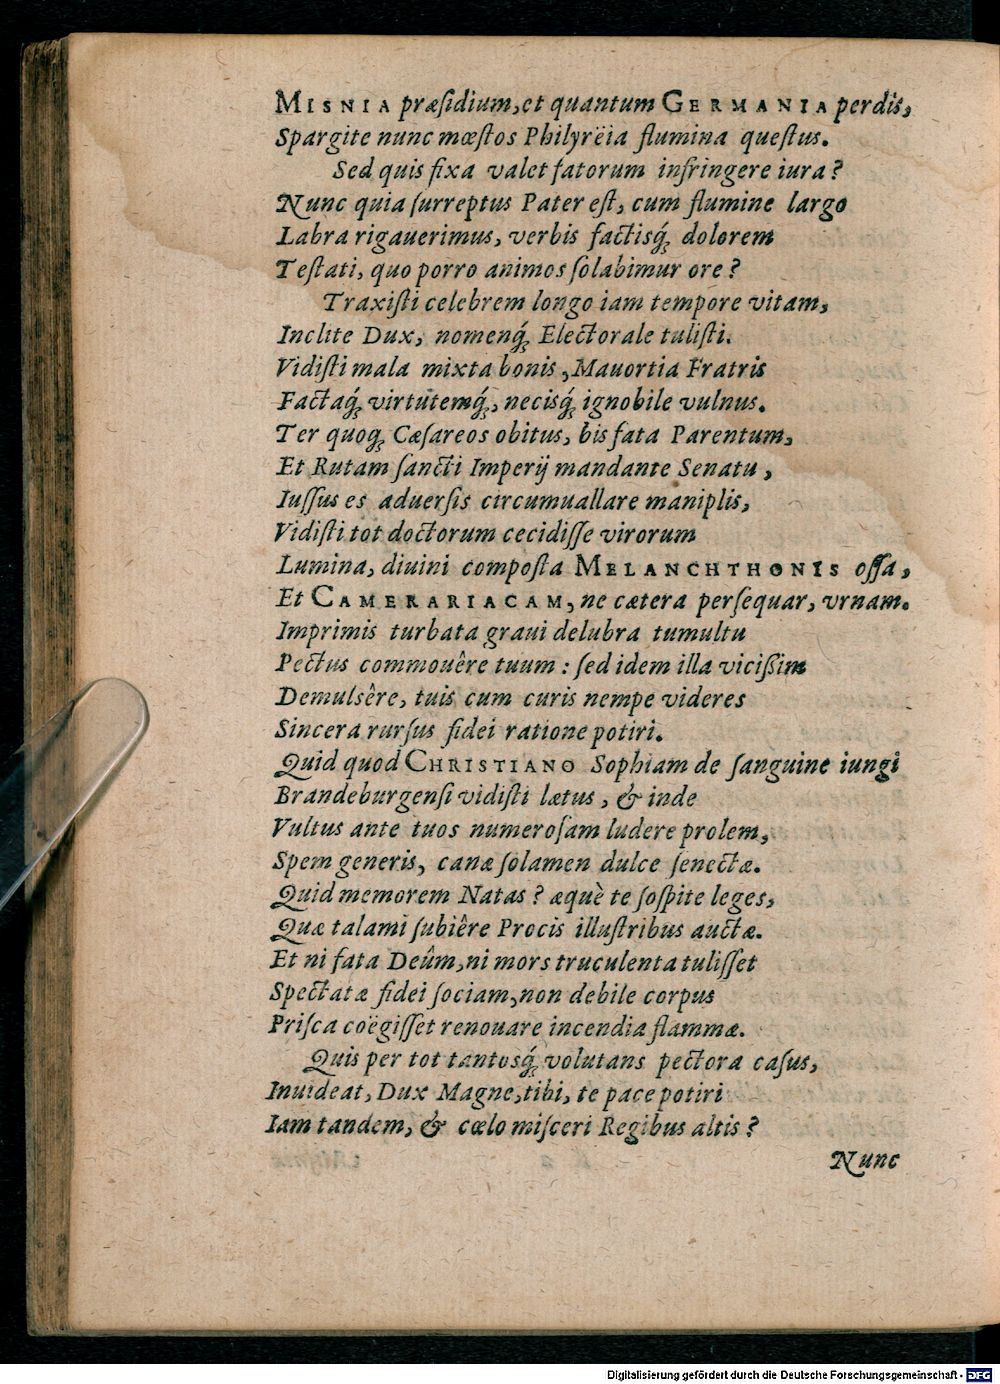 MISNIA præſidium, et quantum GERMANIA perdis,
Spargite nunc mœſtos Philyrëia flumina queſtus.
Sed quis fixa valet fatorum infringere iura?
Nunc quia ſurreptus Pater eſt, cum flumine largo
Labra rigauerimus, verbis factisq́; dolorem
Teſtati, quo porro animos ſolabimur ore?
Traxiſti celebrem longo iam tempore vitam,
Inclite Dux, nomenq́; Electorale tuliſti.
Vidiſti mala mixta bonis, Mauortia Fratris
Factaq́; virtutemq́;, necisq́; ignobile vulnus.
Ter quoq; Cæſareos obitus, bis fata Parentum,
Et Rutam ſancti Imperij mandante Senatu,
Iuſſus es aduerſis circumuallare maniplis,
Vidiſti tot doctorum cecidiſſe virorum
Lumina, diuini compoſta MELANCHTHONIS oſſa,
Et CAMERARIACAM, ne cætera perſequar, vrnam.
Imprimis turbata graui delubra tumultu
Pectus commouêre tuum: ſed idem illa vicißim
Demulsêre, tuis cum curis nempe videres
Sincera rurſus fidei ratione potiri.
Quid quod CHRISTIANO Sophiam de ſanguine iungi
Brandeburgenſi vidiſti lætus, & inde
Vultus ante tuos numeroſam ludere prolem,
Spem generis, canæ ſolamen dulce ſenectæ.
Quid memorem Natas? æquè te ſoſpite leges,
Quæ talami ſubiêre Procis illuſtribus auctæ.
Et ni fata Deûm, ni mors truculenta tuliſſet
Spectatæ fidei ſociam, non debile corpus
Priſca coëgiſſet renouare incendia flammæ.
Quis per tot tantosq́; volutans pectora caſus,
Inuideat, Dux Magne, tibi, te pace potiri
Iam tandem, & cœlo miſceri Regibus altis?
Nunc
Digitalisierung gefördert durch die Deutsche Forschungsgemeinschaft - DFG